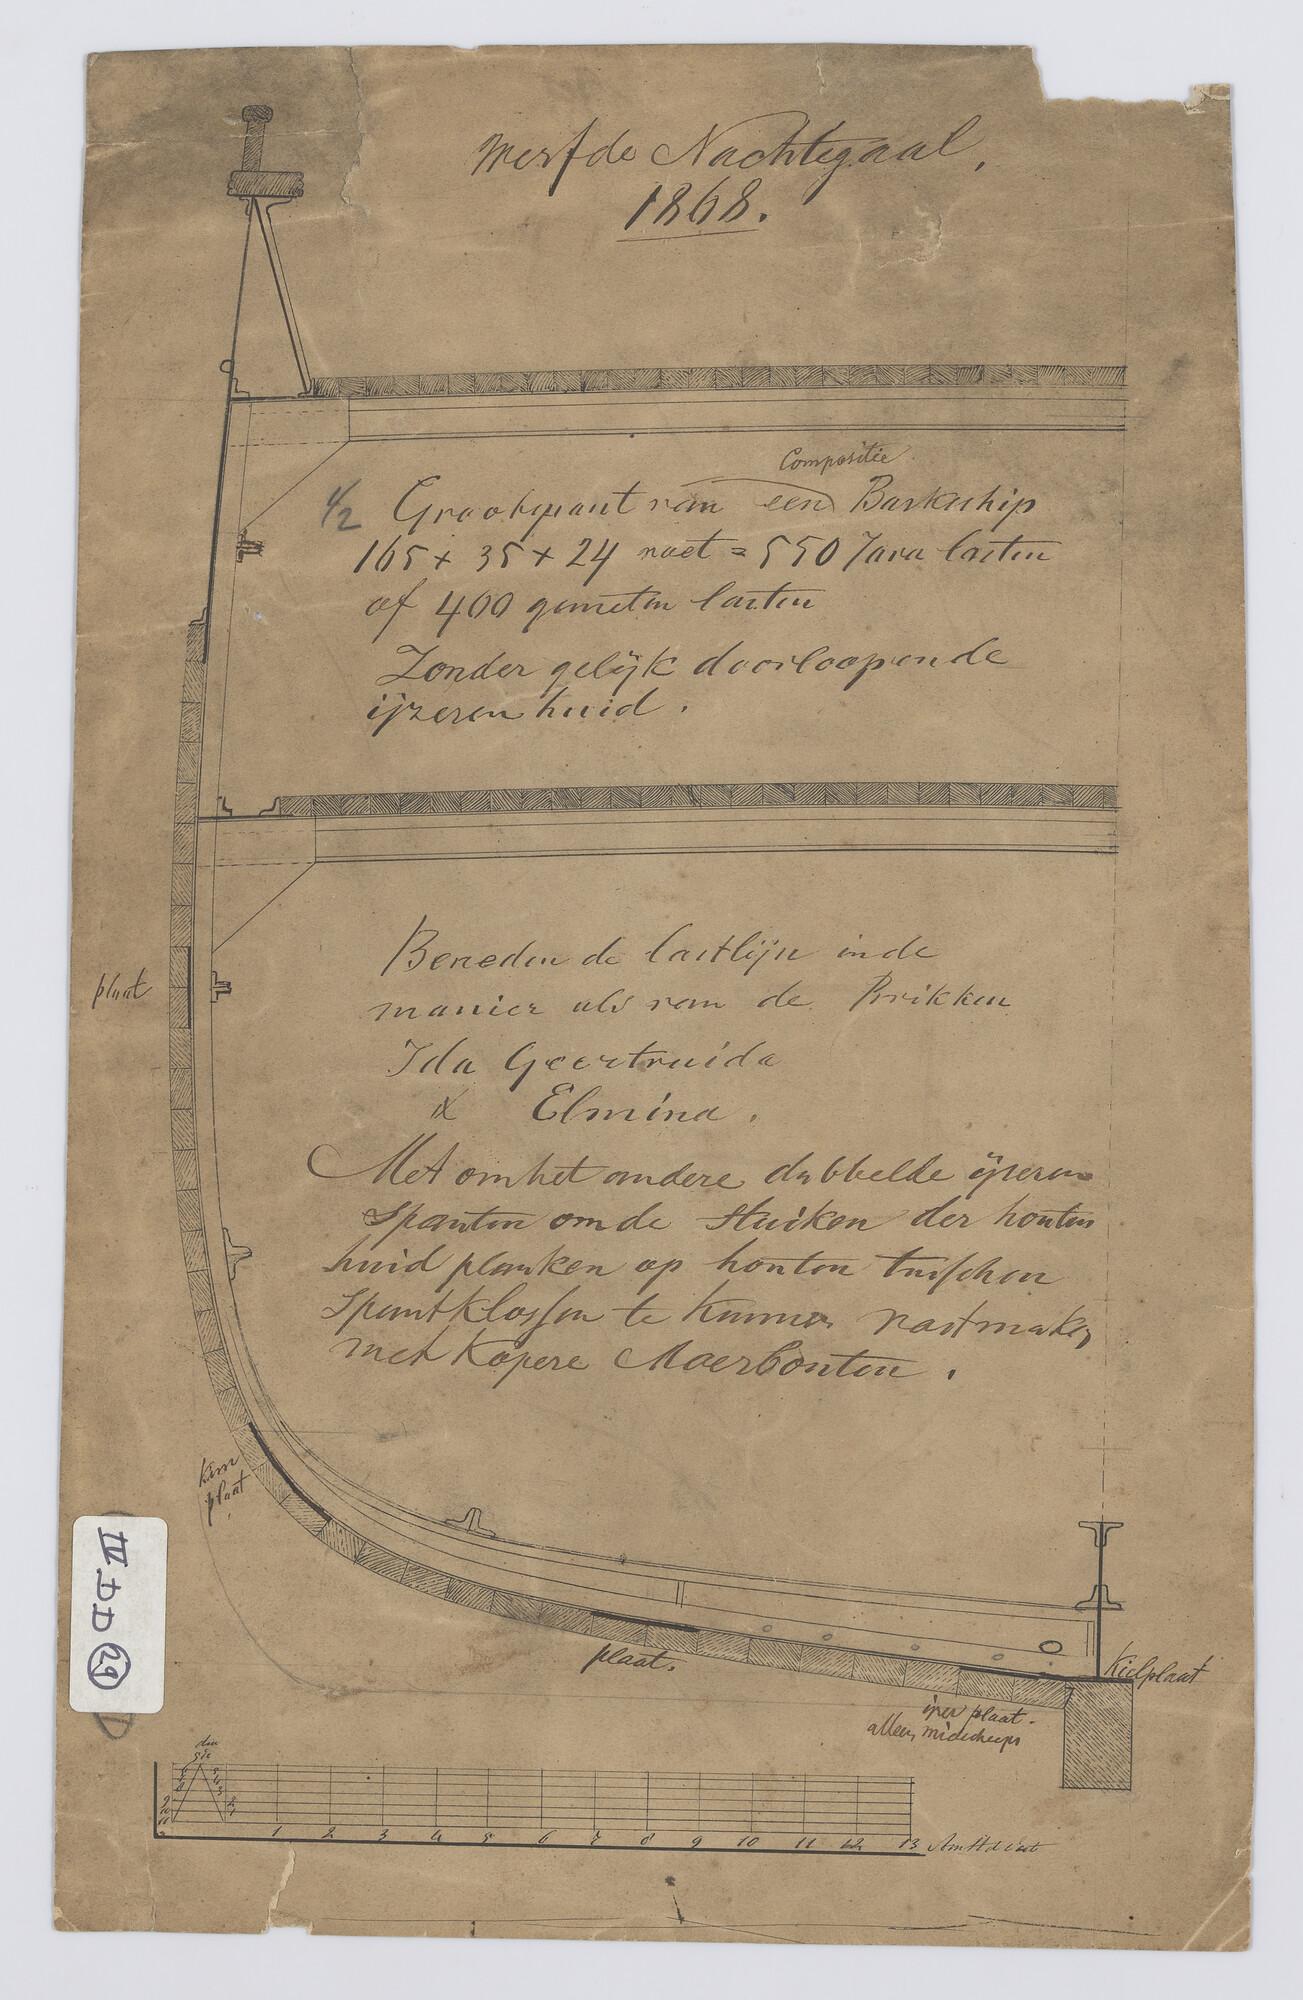 Werf de Nachtegaal,
1868.
Compositie
1/2 Grootspant van een Barkschip
165 x 35 x 24 voet = 550 Java lasten
of 400 gemeten lasten
Zonder gelijk doorloopende
ijzeren huid.
Beneden de lastlijn in de
manier als van de Brikken
plaat
Ida Geertruida
& Elmina.
Met om het andere dubbelde ijzeren
Spanten om de Stuiken der houten
huid planken op houten tusschen
Spantklossen te kunnen vastmaken
met Kopere Moerbouten.
Kim
plaat
plaat.
Kielplaat
ijzer plaat.
alleen midscheeps
IV DD 29
1 2 3 4 5 6 7 8 9 10 11 12 13 Amst voet